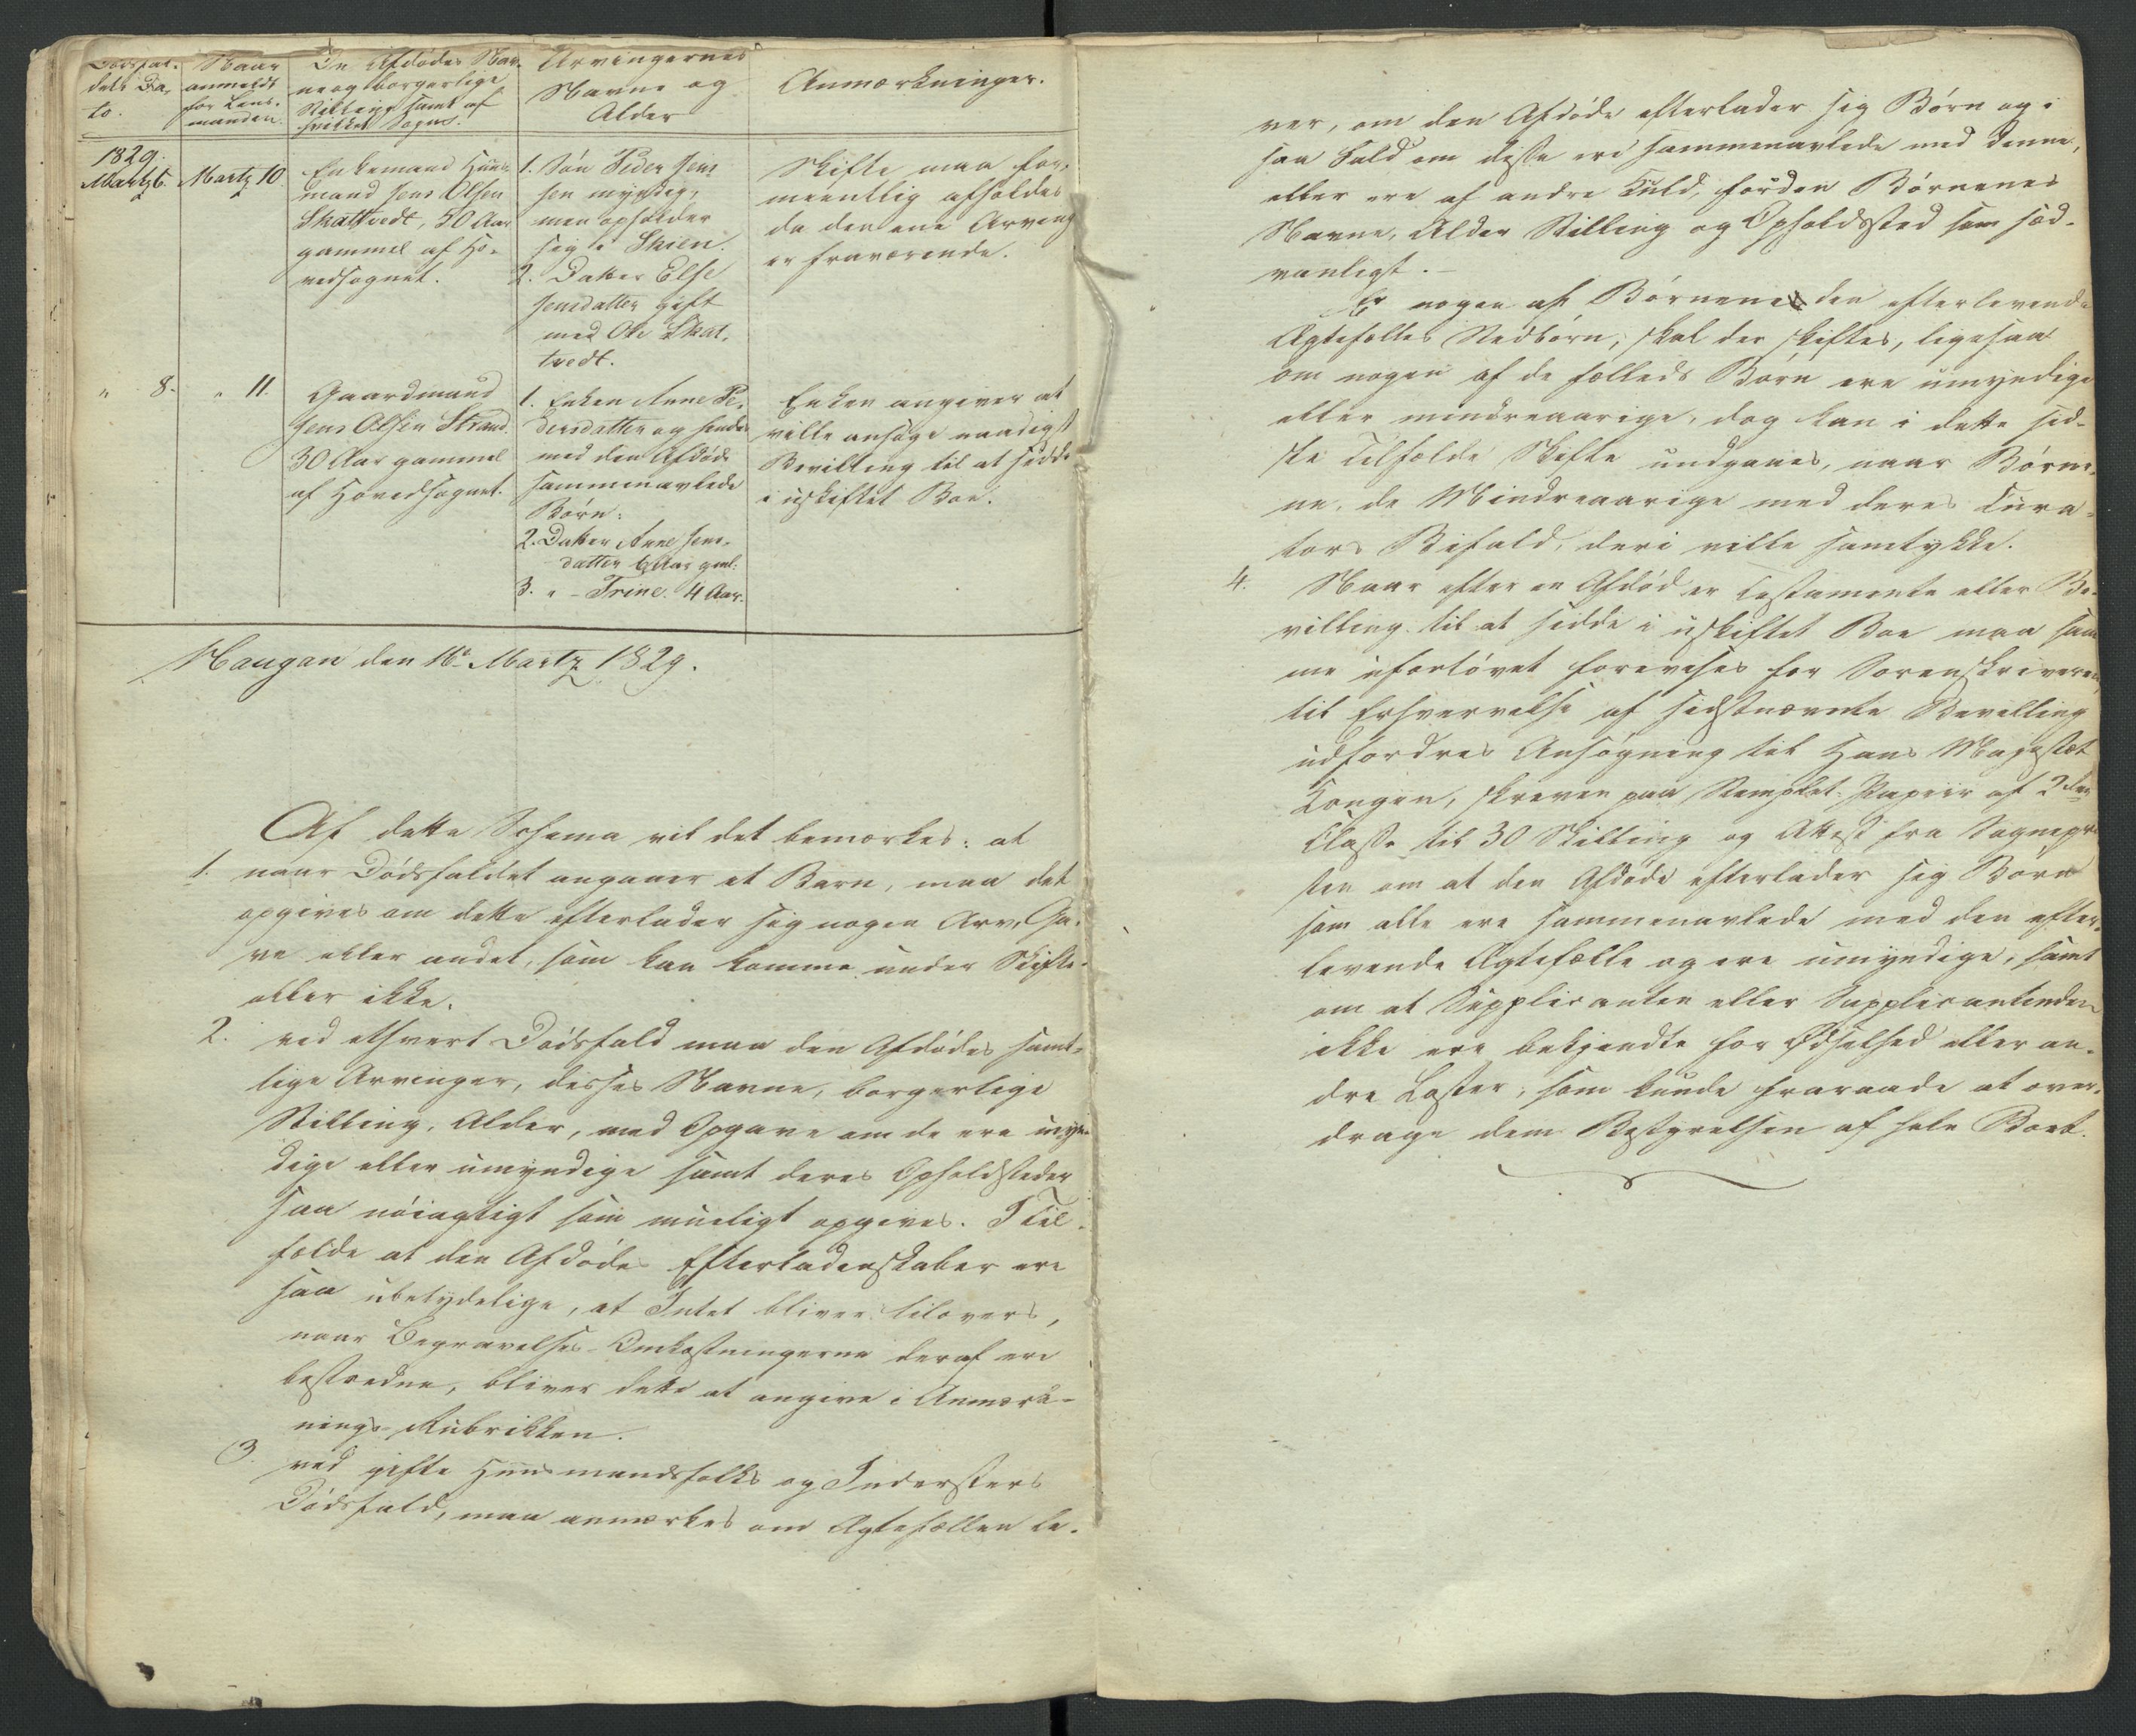 Dødsfal-
dets Da-
to.
Naar
anmeldt
for Lens-
manden.
De Afdødes Nav-
ne og borgerlige
Stilling samt af
hvilket Sogn.
Arvingernes
Navne og
Alder
Anmærkninger.
1829.
Martz 6.
Martz 10.
Enkemand Huus-
mand Jens Olsen
Skattvedt, 50 Aar
gammel af Ho-
vedsognet.
1. Søn Peder Jen-
sen myndig,
men opholder
sig i Skien.
2. Datter Else
Jensdatter gift
med Ole Skat-
tvedt.
Skifte maa for-
meentlig afholdes
da den ene Arving
er fraværende.
" 8.
" 11.
Gaardmand
Jens Olsen Strand.
30 Aar gammel
af Hovedsognet.
1. Enken Anne Pe-
dersdatter og hendes
med den Afdøde
sammenavlede
Børn:
2. Datter Anne Jens-
datter 6 Aar gml.
3. " - Trine. 4 Aar.
Enken angiver at
ville ansøge naadigst
Bevilling til at sidde
i uskiftet Boe.
Haugan den 16de Martz 1829.
Af dette Schema vil det bemærkes: at
1. naar Dødsfaldet angaaer et Barn, maa det
opgives om dette efterlader sig nogen Arv, Ga-
ve eller andet, som kan komme under Skifte
eller ikke.
2. ved ethvert Dødsfald maa den Afdødes samt-
lige Arvinger, disses Navne, borgerlige
Stilling, Alder, med Opgave om de ere myn-
dige eller umyndige samt deres Opholdsteder
saa nøiagtigt som mueligt opgives. I Til-
fælde at den Afdødes Efterladenskaber ere
saa ubetydelige, at Intet bliver tilovers,
naar Begravelses-Omkostningerne deraf ere
bestredne, bliver dette at angive i Anmærk-
nings-Rubrikken.
3. ved gifte Huusmandsfolks og Indersters
Dødsfald, maa anmærkes om Ægtefællen le-
ver, om den Afdøde efterlader sig Børn og i
saa Fald om disse ere sammenavlede med denne,
eller ere af andre Kuld, foruden Børnenes
Navne, Alder Stilling og Opholdssted som sæd-
vanligt. -
Er nogen af Børnene den efterlevende
Ægtefælles Stedbørn, skal der skiftes, ligesaa
om nogen af de fælleds Børn ere umyndige
eller mindreaarige, dog kan i dette sid-
ste Tilfælde Skifte undgaaes, naar Børne-
ne, de Mindreaarige med deres Cura-
tors Bifald, deri ville samtykke.
4. Naar efter en Afdød er Testamente eller Be-
villing til at sidde i uskiftet Boe maa sam-
me ufortøvet forevises for Sorenskriveren,
til Erhvervelse af sidstnævnte Bevilling
udfordres Ansøgning til Hans Majestæt
Kongen, skreven paa Stemplet Papiir af 2den
Classe til 30 Skilling og Attest fra Sognepre-
sten om at den Afdøde efterlader sig Børn
som alle ere sammenavlede med den efter-
levende Ægtefælle og ere umyndige, samt
om at Supplicanten eller Supplicantinden
ikke ere bekjendte for Ødselhed eller an-
dre Laster, som kunde fraraade at over-
drage dem Bestyrelsen af hele Boet.